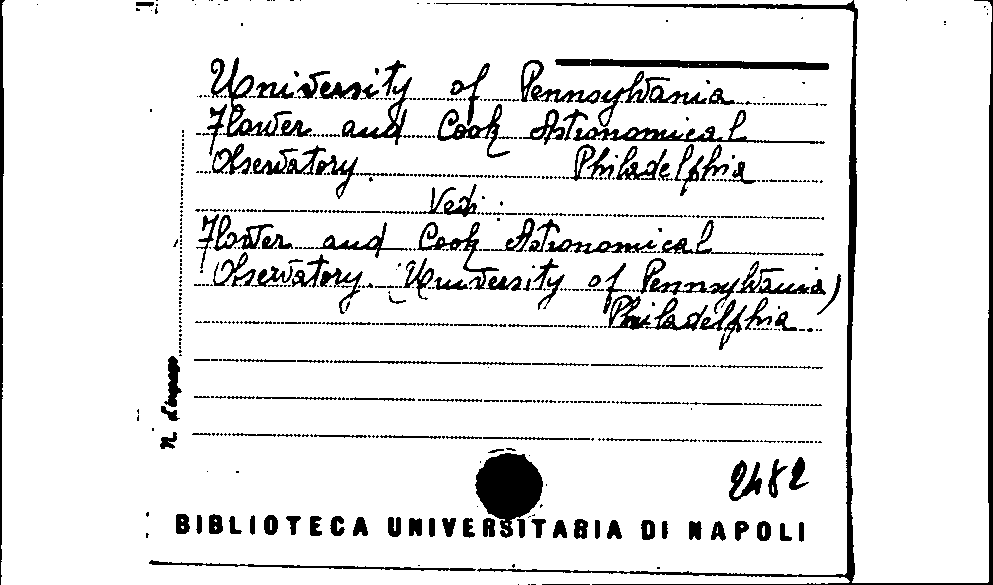 University of Pennsylvania
Flower and Cook Astronomical
Observatory. Philadelphia
Vedi:
Flower and Cook Astronomical
Observatory. (University of Pennsylvania)
Philadelphia.
N. d'ingresso
2482
BIBLIOTECA UNIVERSITARIA DI NAPOLI